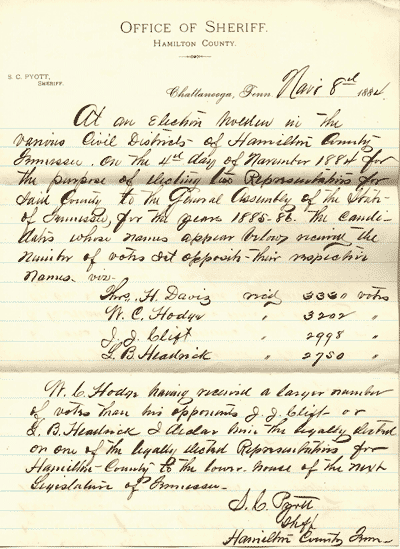 OFFICE OF SHERIFF.
HAMILTON COUNTY.
S. C. PYOTT,
SHERIFF.
Chattanooga, Tenn. Nov 8th 1884
At an Election holden in the
various Civil Districts of Hamilton County
Tennessee. on the 4th day of November 1884 for
the purpose of electing two Representatives for
said County to the General Assembly of the State
of Tennessee, for the years 1885-86. the candi-
dates whose names appear below received the
number of votes set opposite their respective
names. viz-
H. Davis recd 3330 votes
W. C. Hodge " 3202 "
J. J. Clift " 2998 "
B. Headrick " 2750 "
W. C. Hodge having received a larger number
of votes than his opponents J. J. Clift or
B. Headrick I declar him the legally elected
on one of the legally elected Representatives for
Hamilton County to the lower house of the next
Legislature of Tennessee-
S. C. Pyott
Shff
Hamilton County Tenn-